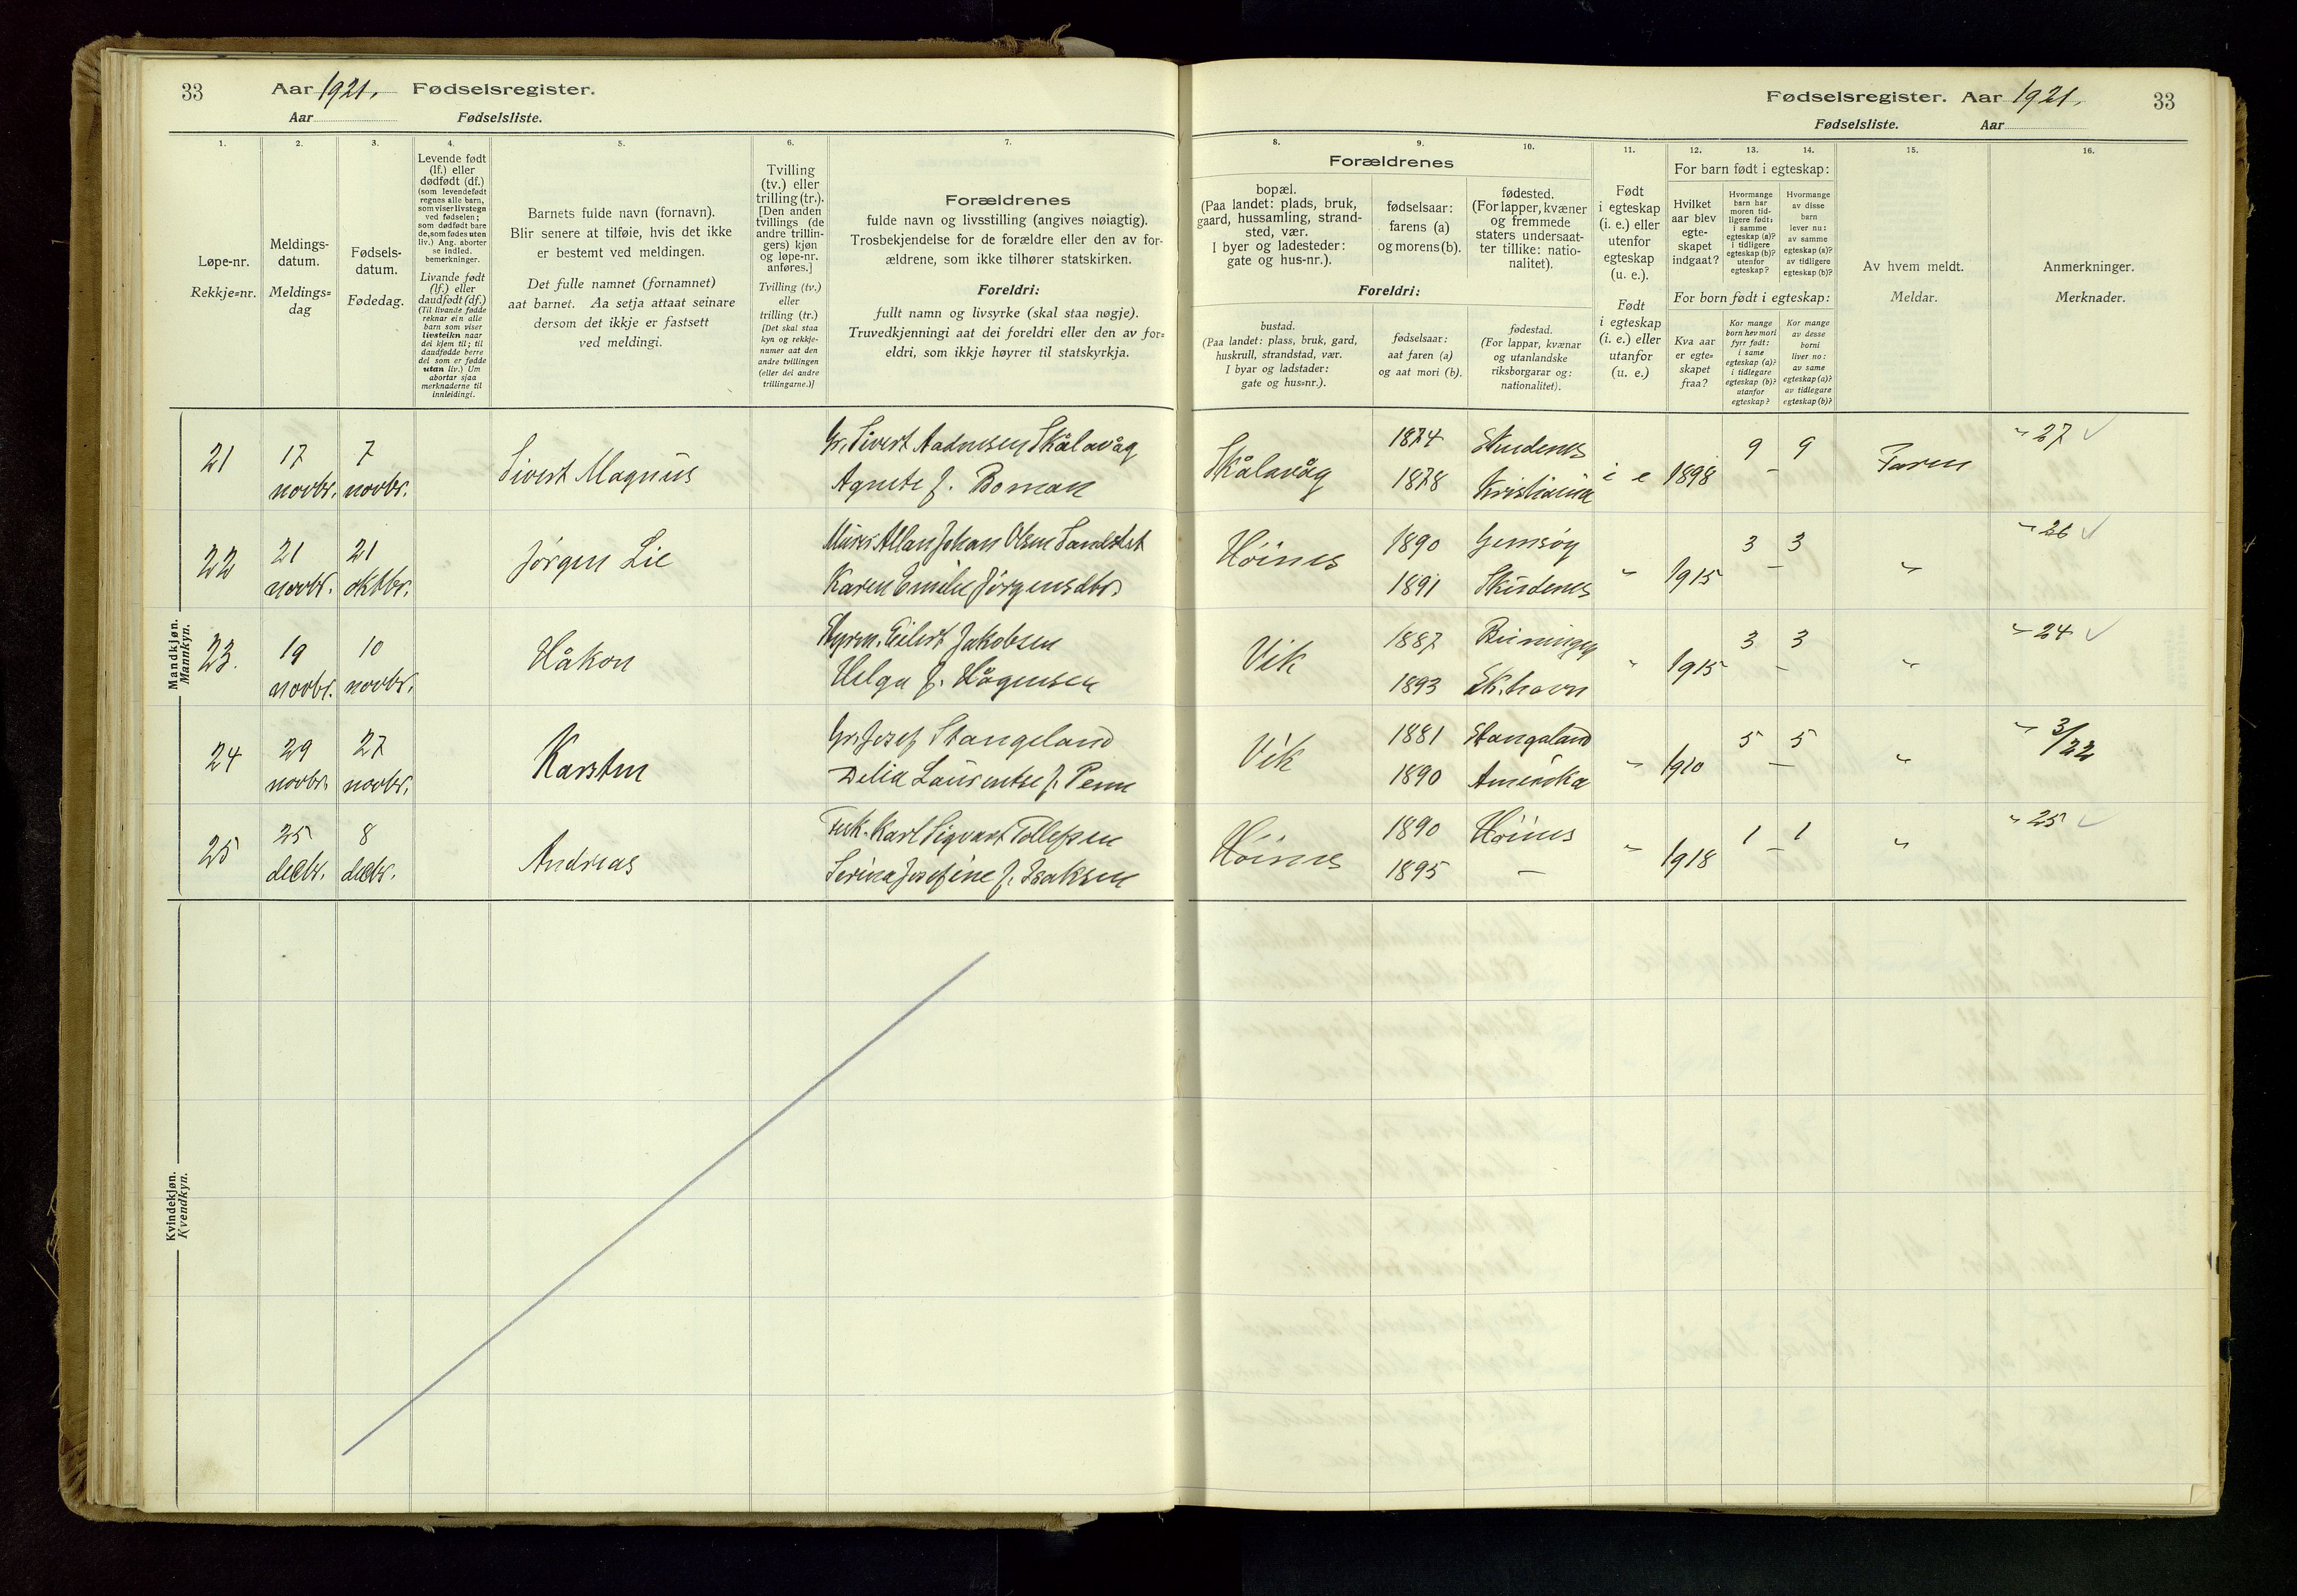 33 Aar 1921. Fødselsregister.
Aar Fødselsliste.
Fødselsregister. Aar 1921. 33
Fødselsliste. Aar
1. 2. 3. 4. 5. 6. 7.
8. 9. 10. 11. 12. 13. 14. 15. 16.
Løpe-nr.
Rekkje=nr.
Meldings-
datum.
Meldings=
dag
Fødsels-
datum.
Fødedag.
Levende født
(lf.) eller
dødfødt (df.)
(som levendefødt
regnes alle barn,
som viser livstegn
ved fødselen;
som dødfødt bare
de, som fødes uten
liv.) Ang. aborter
se indled.
bemerkninger.
Livande født
(lf.) eller
daudfødt (df.)
(Til livande fødde
reknar ein alle
barn som viser
livsteikn naar
dei kjem til; til
daudfødde berre
dei som er fødde
utan liv.) Um
abortar sjaa
merknaderne til
innleidingi.
Barnets fulde navn (fornavn).
Blir senere at tilføie, hvis det ikke
er bestemt ved meldingen.
Det fulle namnet (fornamnet)
aat barnet. Aa setja attaat seinare
dersom det ikkje er fastsett
ved meldingi.
Tvilling
(tv.) eller
trilling (tr.).
[Den anden
tvillings (de
andre trillin-
gers) kjøn
og løpe-nr.
anføres.]
Tvilling (tv.)
eller
trilling (tr.)
[Det skal staa
kyn og rekkje-
numer aat den
andre tvillingen
(eller dei andre
trillingarne.)]
Forældrenes
fulde navn og livsstilling (angives nøiagtig).
Trosbekjendelse for de forældre eller den av for-
ældrene, som ikke tilhører statskirken.
Foreldri:
fullt namn og livsyrke (skal staa nøgje).
Truvedkjenningi aat dei foreldri eller den av for=
eldri, som ikkje høyrer til statskyrkja.
Forældrenes
bopæl.
(Paa landet: plads, bruk,
gaard, hussamling, strand-
sted, vær.
I byer og ladesteder:
gate og hus-nr.).
fødselsaar:
farens (a)
og morens (b).
fødested.
(For lapper, kvæner
og fremmede
staters undersaat-
ter tillike: natio-
nalitet).
Foreldri:
bustad.
(Paa landet: plass, bruk, gard,
huskrull, strandstad, vær.
I byar og ladstader:
gate og hus=nr.).
fødselsaar:
aat faren (a)
og aat mori (b).
fødestad.
(For lappar, kvænar
og utanlandske
riksborgarar og:
nationalitet).
Født
i egteskap
(i. e.) eller
utenfor
egteskap
(u. e.).
Født
i egteskap
(i. e.) eller
utanfor
(u. e.)
For barn født i egteskap:
Hvilket
aar blev
egte-
skapet
indgaat?
Hvormange
barn har
moren tid-
ligere født:
i samme
egteskap (a)?
i tidligere
egteskap (b)?
utenfor
egteskap?
Hvormange
av disse
barn
lever nu:
av samme
egteskap (a)?
av tidligere
egteskap (b)?
For born født i egteskap:
Kva aar
er egte=
skapet
fraa?
Kor mange
born hev mori
fyrr født:
i same
egteskap (a)?
i tidlegare
egteskap (b)?
utanfor
egteskap?
Kor mange
av desse
borni
liver no:
av same
egteskap (a)?
av tidlegare
egteskap (b)?
Av hvem meldt.
Meldar.
Anmerkninger.
Merknader.
Mandkjøn.
Mannkyn.
21 17 novbr. 7 novbr. Sivert Magnus Gr. Sivert Aadnesen Skålavåg Skålavåg 1874 Skudenes i e 1898 9 9 Faren " 27 ✓
Agnete f. Boman 1878 Kristiania –
22 21 novbr. 21 oktbr. Jørgen Lie Murer Allan Johan Olsen Høines 1890 " 1915 3 3 " " 26 ✓
Karen Emilie Jørgensdtr. 1891 Skudenes –
23. 19 novbr. 10 novbr. Håkon Styrm. Eilert Jakobsen Vik 1887 " 1915 3 3 " " 24 ✓
Helga f. Hågensen 1893 Sk.havn –
24 29 novbr. 27 novbr. Karsten Gr. Josef Stangeland Vik 1881 Stangeland " 1910 5 5 " " 3/22
Delia Laurentse f. Penn 1890 Amerika –
25 25 decbr. 8 decbr. Andreas Karl Sigvart Tollefsen Høines 1890 Høines " 1918 1 1 " " 25 ✓
Serina Josefine f. Isaksen 1895 – –
Kvindekjøn.
Kvendkyn.